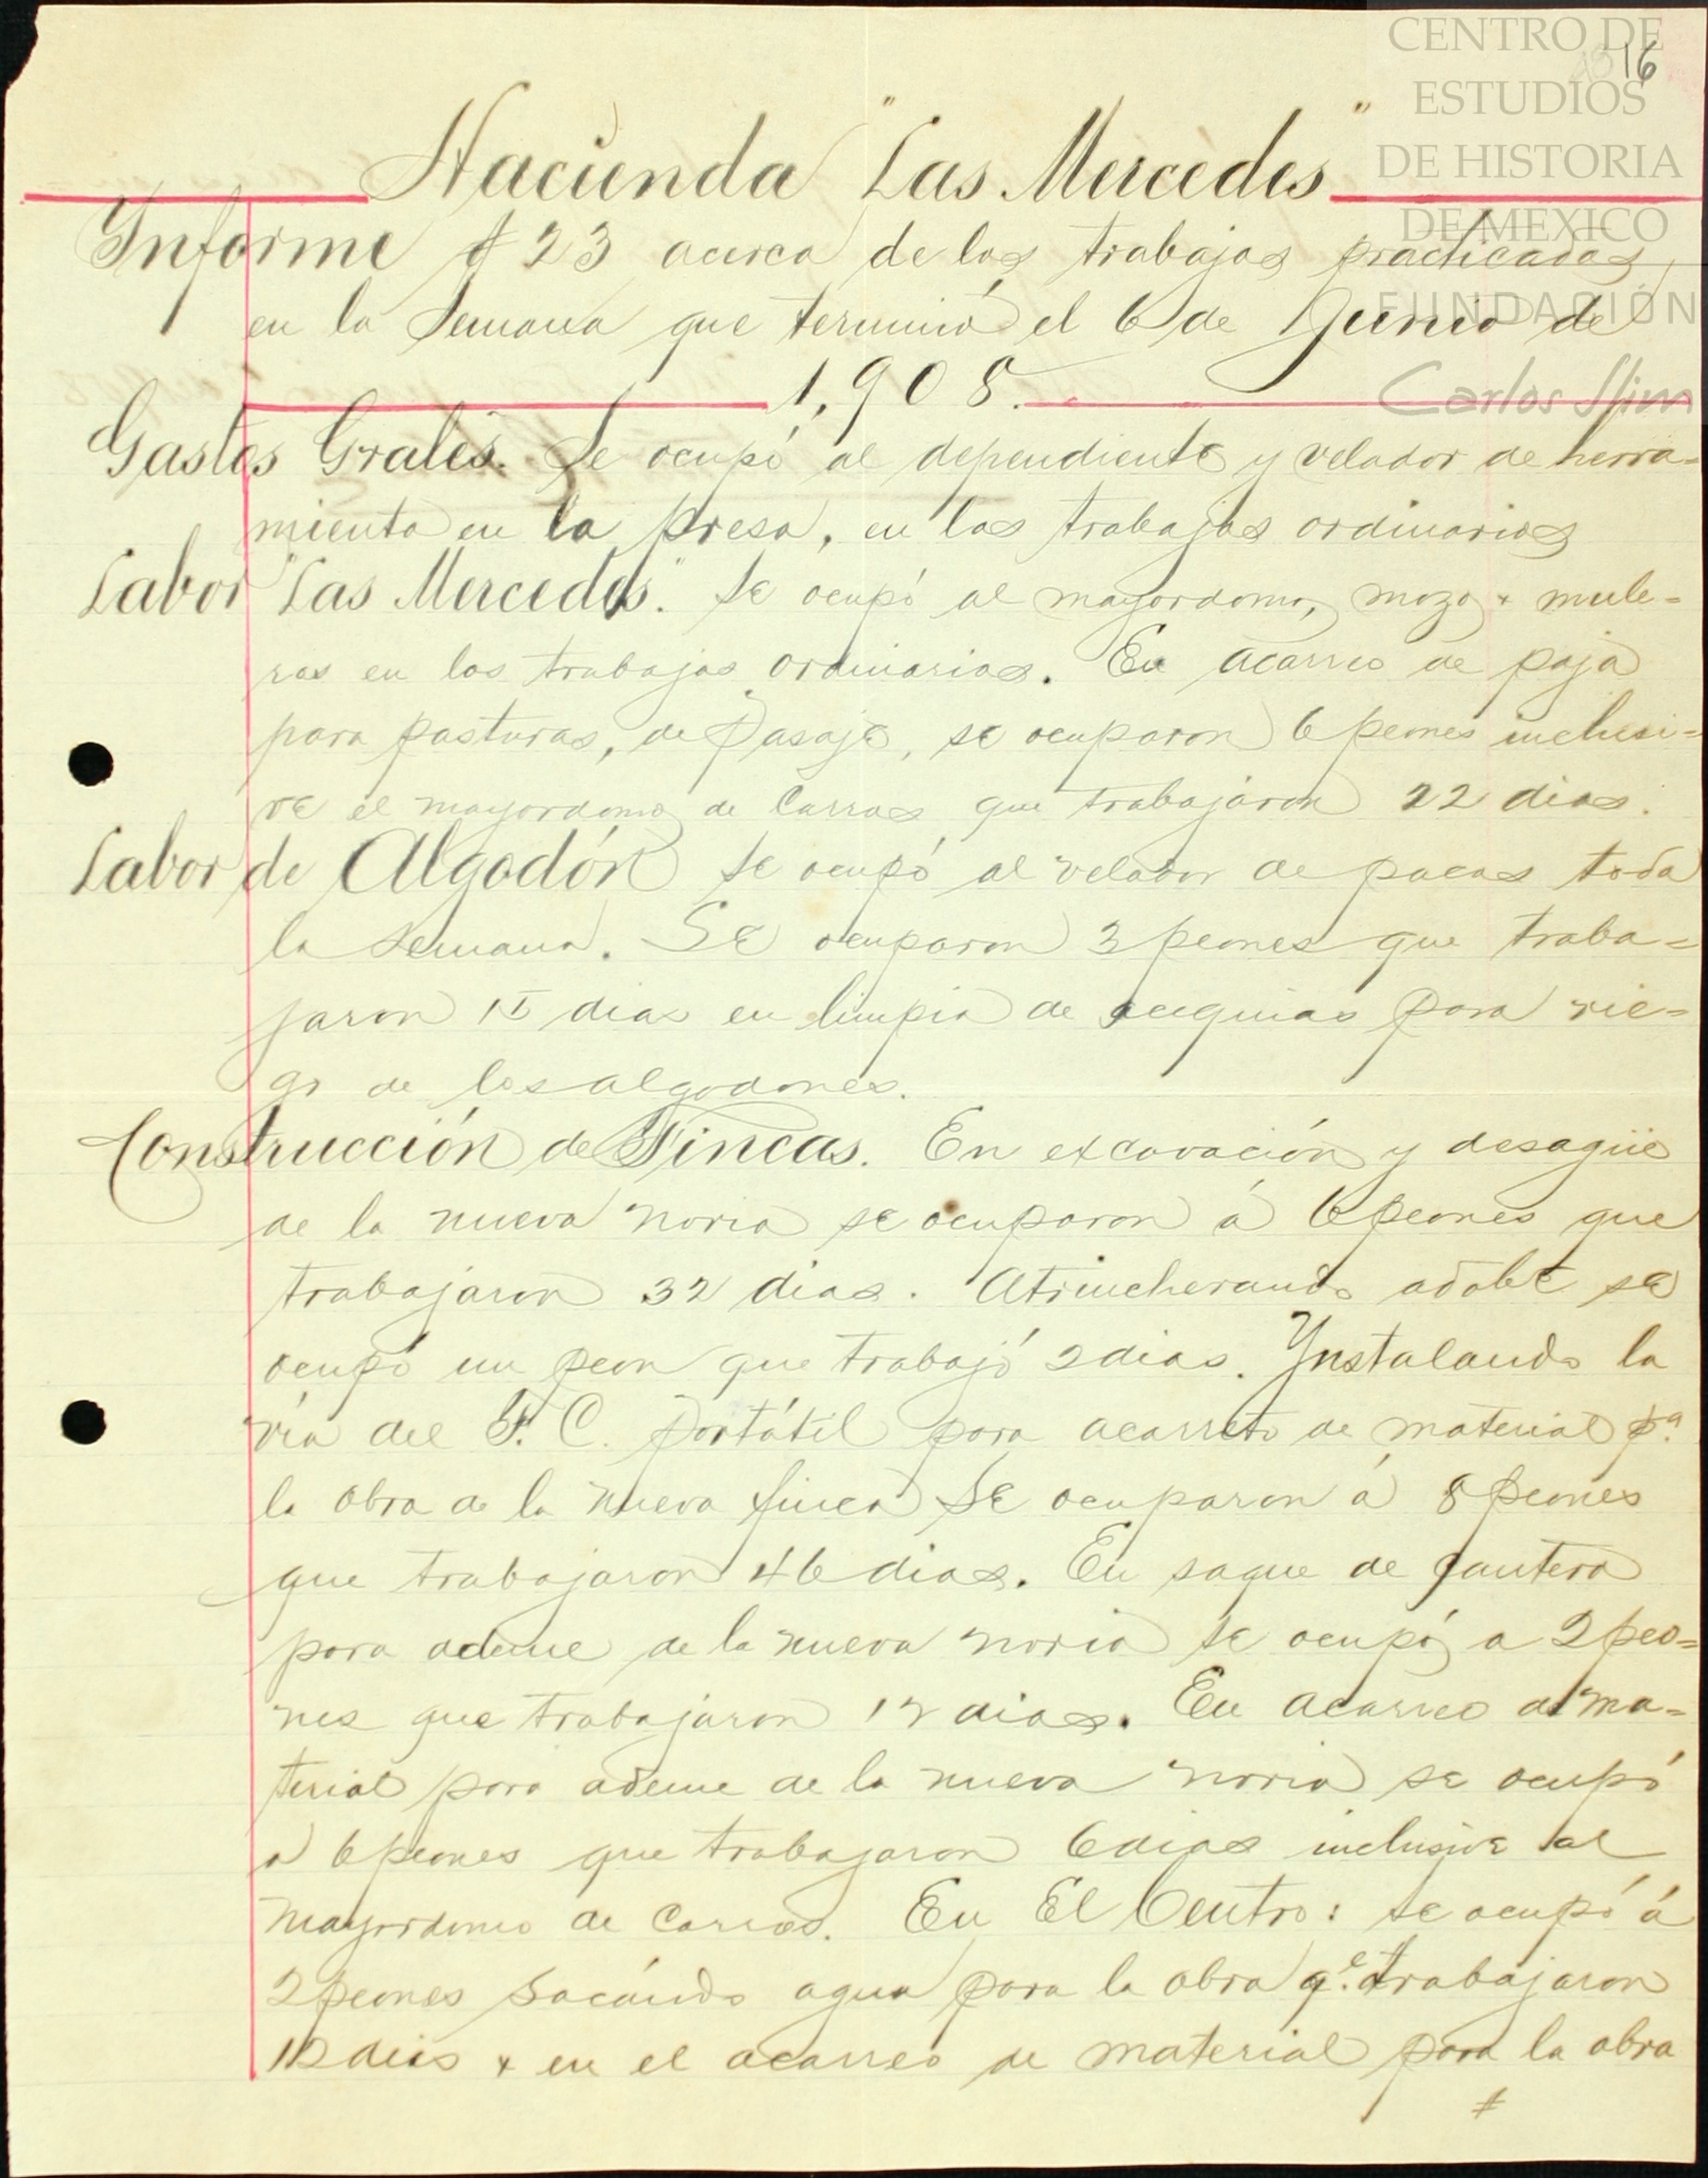 CENTRO DE
ESTUDIOS
DE HISTORIA
DE MEXICO
FUNDACIÓN
Carlos Slim
16
Hacienda "Las Mercedes"
Informe # 23 acerca de los trabajos practicados
en la Semana que terminó el 6 de Junio de
1,908.
Gastos Grales. Se ocupó al dependiente y velador de herra=
mienta en la presa, en los trabajos ordinarios
Labor "Las Mercedes". Se ocupó al mayordomo, mozo y mule=
ros en los trabajos ordinarios. En acarreo de paja
para pasturas, de Pasaje, se ocuparon 6 peones inclusi=
ve el mayordomo de Carros que trabajaron 22 dias.
Labor de Algodón Se ocupó al velador de pacas toda
la Semana. Se ocuparon 3 peones que traba=
jaron 15 dias en limpia de acequias para rie=
go de los algodones.
Construcción de Fincas. En excavación y desagüe
de la nueva noria se ocuparon á 6 peones que
trabajaron 32 dias. Atrincherando adobe se
ocupó un peon que trabajó 2 dias. Ynstalando la
vía del F. C. portátil para acarreto de material pª.
la obra de la nueva finca se ocuparon á 8 peones
que trabajaron 46 dias. En saque de cantera
para ademe de la nueva noria se ocupó a 2 peo=
nes que trabajaron 12 dias. En acarreo de ma=
terial para ademe de la nueva noria se ocupó
a 6 peones que trabajaron 6 dias inclusive al
mayordomo de carros. En El Centro: se ocupó á
2 peones sacando agua para la obra q.e trabajaron
12 dias y en el acarreo de material para la obra
#